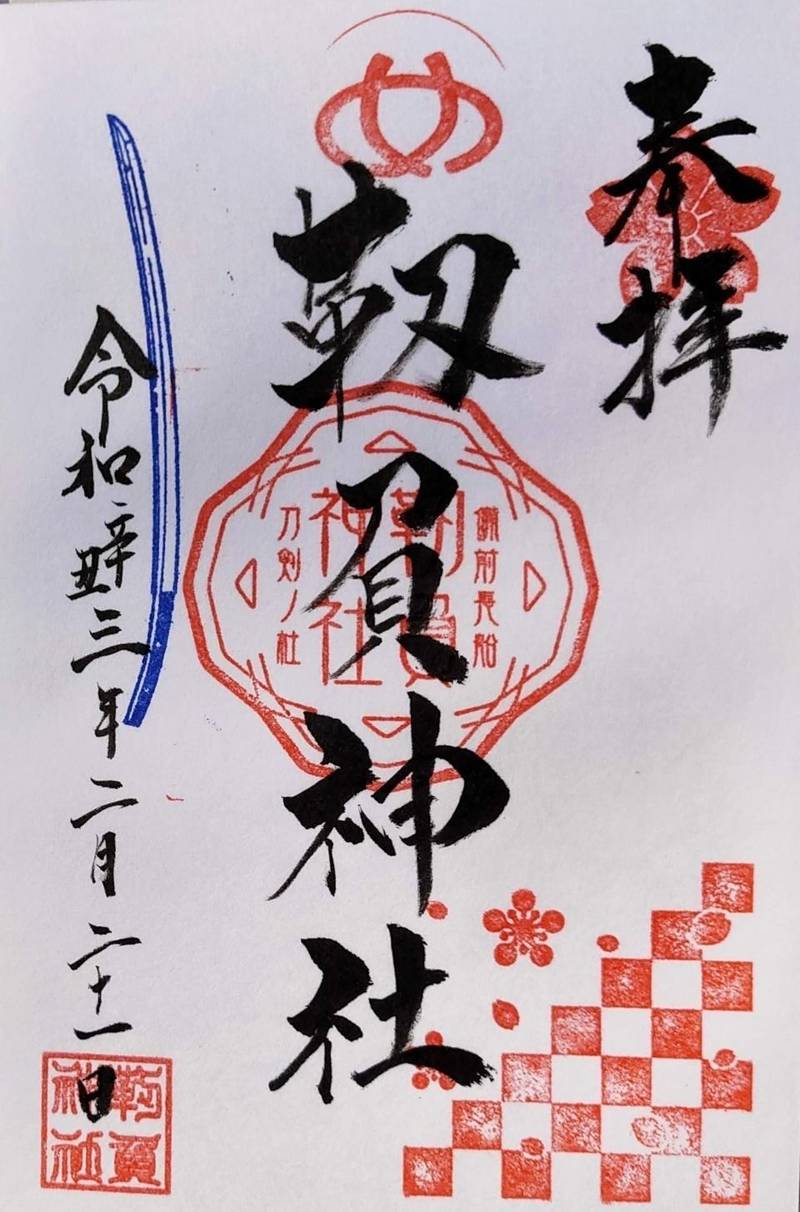 奉拝
め
靱負神社
備前長船
靱負
神社
刀剣ノ社
令和辛丑三年二月二十一日
靱負
神社